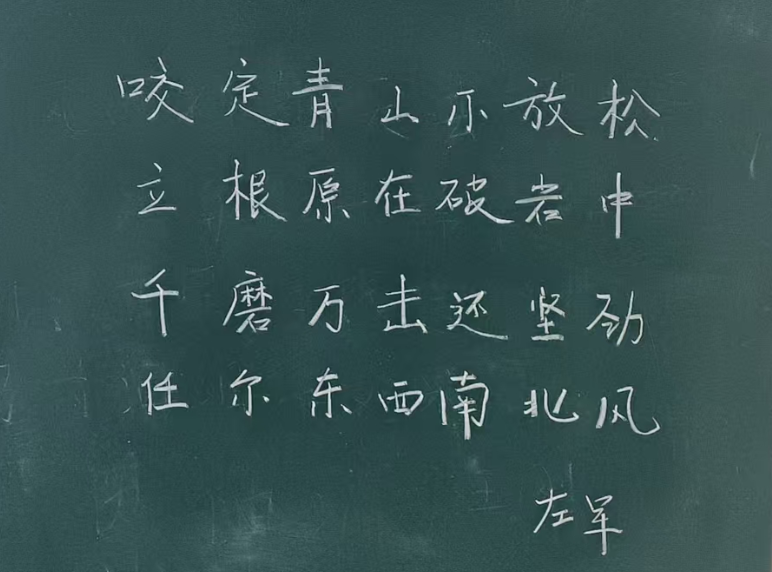 咬定青山不放松
立根原在破岩中
千磨万击还坚劲
任尔东西南北风
左军